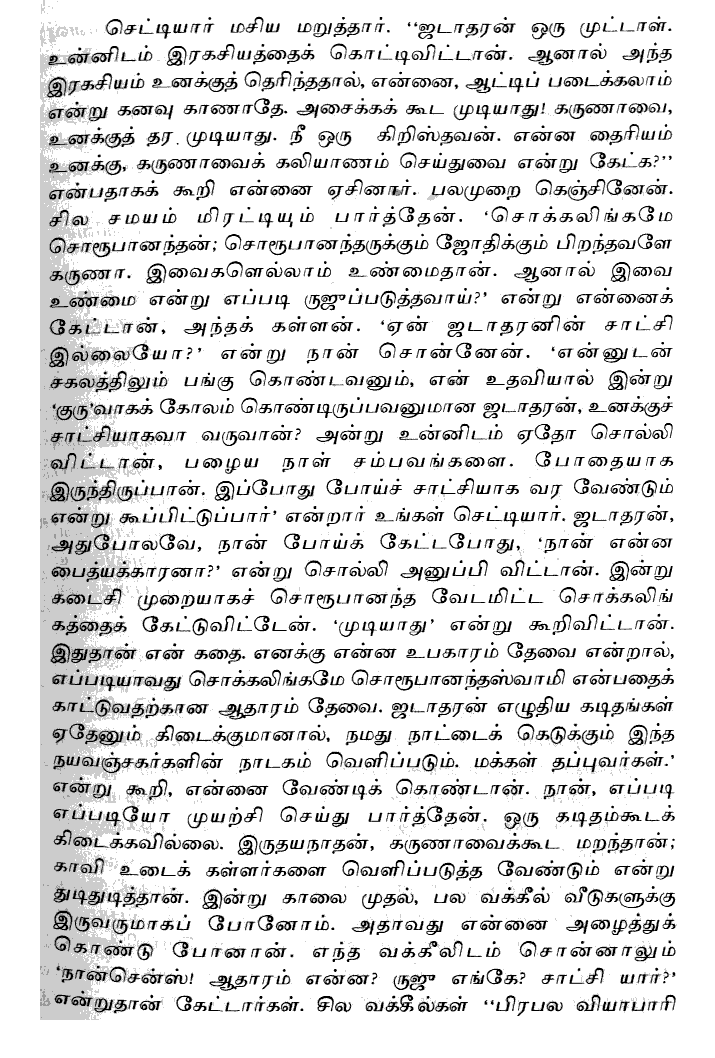 செட்டியார் மசிய மறுத்தார். ‘‘ஜடாதரன் ஒரு முட்டாள்.
உன்னிடம் இரகசியத்தைக் கொட்டிவிட்டான். ஆனால் அந்த
இரகசியம் உனக்குத் தெரிந்ததால், என்னை, ஆட்டிப் படைக்கலாம்
என்று கனவு காணாதே. அசைக்கக் கூட முடியாது! கருணாவை,
உனக்குத் தர முடியாது. நீ ஒரு கிறிஸ்தவன். என்ன தைரியம்
உனக்கு, கருணாவைக் கலியாணம் செய்துவை என்று கேட்க?’’
என்பதாகக் கூறி என்னை ஏசினார். பலமுறை கெஞ்சினேன்.
சில சமயம் மிரட்டியும் பார்த்தேன். ‘சொக்கலிங்கமே
சொரூபானந்தன்; சொரூபானந்தருக்கும் ஜோதிக்கும் பிறந்தவளே
கருணா. இவைகளெல்லாம் உண்மைதான். ஆனால் இவை
உண்மை என்று எப்படி ருஜுப்படுத்தவாய்?’ என்று என்னைக்
கேட்டான், அந்தக் கள்ளன். ‘ஏன் ஜடாதரனின் சாட்சி
இல்லையோ?’ என்று நான் சொன்னேன். ‘என்னுடன்
சகலத்திலும் பங்கு கொண்டவனும், என் உதவியால் இன்று
‘குரு’வாகக் கோலம் கொண்டிருப்பவனுமான ஜடாதரன், உனக்குச்
சாட்சியாகவா வருவான்? அன்று உன்னிடம் ஏதோ சொல்லி
விட்டான், பழைய நாள் சம்பவங்களை. போதையாக
இருந்திருப்பான். இப்போது போய்ச் சாட்சியாக வர வேண்டும்
என்று கூப்பிட்டுப்பார்’ என்றார் உங்கள் செட்டியார். ஜடாதரன்,
அதுபோலவே, நான் போய்க் கேட்டபோது, ‘நான் என்ன
பைத்யக்காரனா?’ என்று சொல்லி அனுப்பி விட்டான். இன்று
கடைசி முறையாகச் சொரூபானந்த வேடமிட்ட சொக்கலிங்
கத்தைக் கேட்டுவிட்டேன். ‘முடியாது’ என்று கூறிவிட்டான்.
இதுதான் என் கதை. எனக்கு என்ன உபகாரம் தேவை என்றால்,
எப்படியாவது சொக்கலிங்கமே சொரூபானந்தஸ்வாமி என்பதைக்
காட்டுவதற்கான ஆதாரம் தேவை. ஜடாதரன் எழுதிய கடிதங்கள்
ஏதேனும் கிடைக்குமானால், நமது நாட்டைக் கெடுக்கும் இந்த
நயவஞ்சகர்களின் நாடகம் வெளிப்படும். மக்கள் தப்புவர்கள்.’
என்று கூறி, என்னை வேண்டிக் கொண்டான். நான், எப்படி
எப்படியோ முயற்சி செய்து பார்த்தேன். ஒரு கடிதம்கூடக்
கிடைக்கவில்லை. இருதயநாதன், கருணாவைக்கூட மறந்தான்;
காவி உடைக் கள்ளர்களை வெளிப்படுத்த வேண்டும் என்று
துடிதுடித்தான். இன்று காலை முதல், பல வக்கீல் வீடுகளுக்கு
இருவருமாகப் போனோம். அதாவது என்னை அழைத்துக்
கொண்டு போனான். எந்த வக்கீலிடம் சொன்னாலும்
‘நான்சென்ஸ்! ஆதாரம் என்ன? ருஜு எங்கே? சாட்சி யார்?’
என்றுதான் கேட்டார்கள். சில வக்கீல்கள் ‘‘பிரபல வியாபாரி